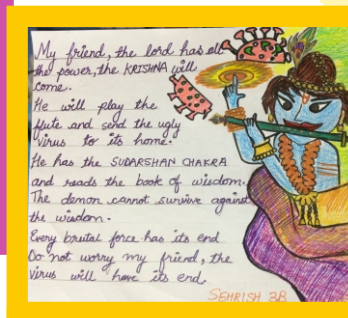 My friend, the lord has all
the power, the KRISHNA will
come.
He will play the
flute and send the ugly
virus to its home.
He has the SUDARSHAN CHAKRA
and reads the book of wisdom.
The demon cannot survive against
the wisdom.
Every brutal force has its end
Do not worry my friend, the
virus will have its end.
SEHRISH 3B